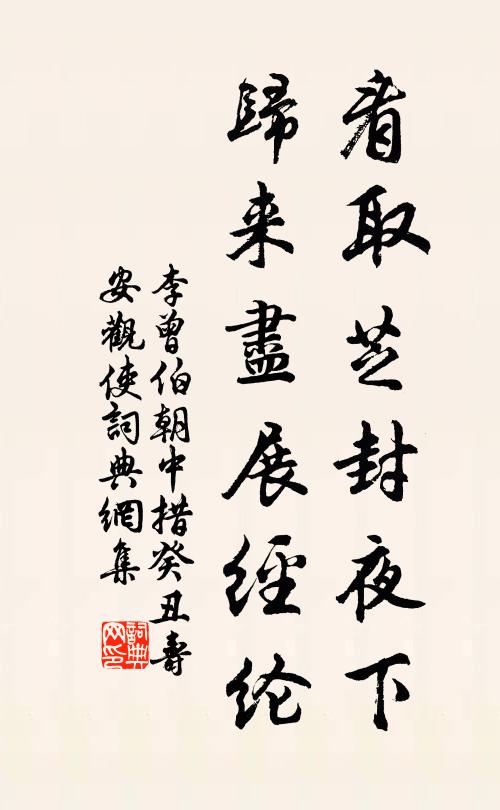 看取芝封夜下
歸来盡展經纶
李曾伯朝中措癸丑壽
安觀使詞典網集
詞典网印